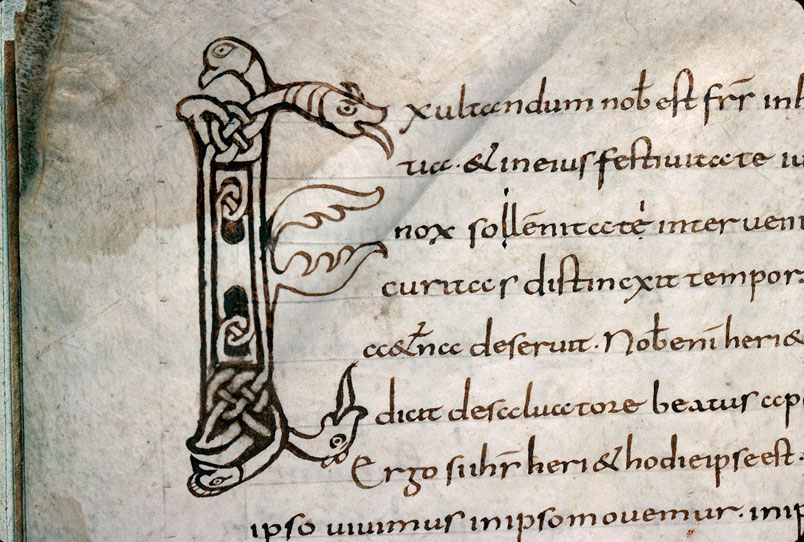 Exultandum nob̄ est fr̄r in h
tia. & in eius festiuitate
nox sollēnitatē interueni
curitas distinxit tempor
& nā deseruit. Nob̄ enī heri &
dicit de saluatore beatus ap
Ergo si ihr̄ heri & hodie ipse est.
ipso uiuimus in ipso mouemur. in ip